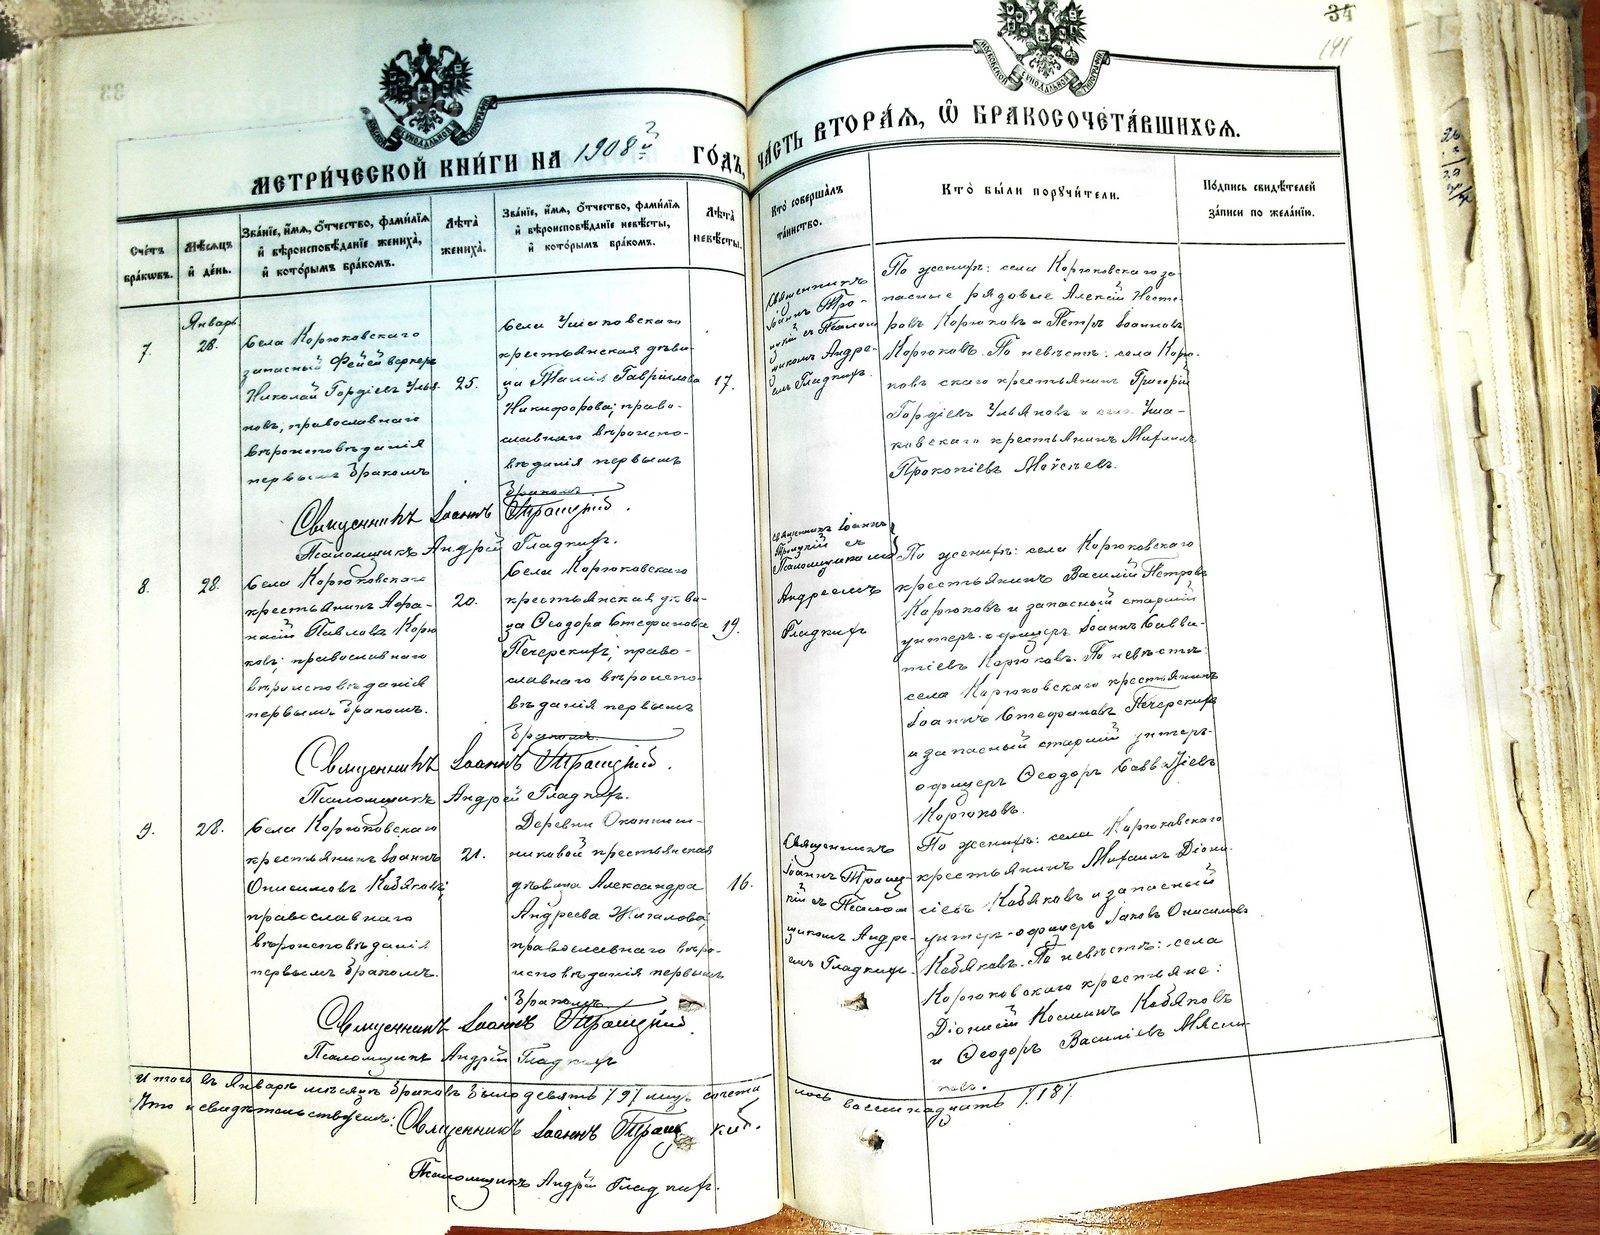 34
141
МЕТРИ́ЧЕСКОЙ КНИ́ГИ НА 1908й ГО́ДЪ,
ЧА́СТЬ ВТОРА́Я, Ѡ҆ БРАКОСОЧЕТА́ВШИХСЯ.
Сче́тъ бра́кѡвъ.
Мѣ́сяцъ и҆ де́нь.
Зва́нїе, и҆́мя, ѻ҆́тчество, фами́лїя
и҆ вѣроисповѣ́данїе жениха̀,
и҆ кото́рымъ бра́комъ.
Лѣ́та жениха̀.
Зва́нїе, и҆́мя, ѻ҆́тчество, фами́лїя
и҆ вѣроисповѣ́данїе невѣ́сты,
и҆ кото́рымъ бра́комъ.
Лѣ́та невѣ́сты.
Кто̀ соверша́лъ
та́инство.
Кто̀ бы́ли поручи́тели.
По́дпись свидѣ́телей
за́писи по жела́нїю.
7.
Январь
28.
Села Корюковскаго
запасный Фейерверкеръ
Николай Гордіевъ Улья
новъ, православнаго
вѣроисповѣданія
первымъ бракомъ
25.
Села Ушаковскаго
крестьянская дѣви-
ца Таисія Гавріилова
Никифорова; право-
славнаго вѣроиспо-
вѣданія первымъ
бракомъ
17.
Священникъ
Іоаннъ Тро-
ицкій съ Псалом
щикомъ Андре-
емъ Гладкихъ.
По женихѣ: села Корюковскаго за-
пасные рядовые Алексій Несто-
ровъ Корюковъ и Петръ Іоанновъ
Корюковъ. По невѣстѣ: села Корю-
ковскаго крестьянинъ Григорій
Гордіевъ Ульяновъ и села Уша-
ковскаго крестьянинъ Михаилъ
Прокопіевъ Моисеевъ.
Священникъ Іоаннъ Троицкій.
Псаломщикъ Андрей Гладкихъ.
8.
28.
Села Корюковскаго
крестьянинъ Афана-
насій Павловъ Корю
ковъ; православнаго
вѣроисповѣданія
первымъ бракомъ.
20.
Села Корюковскаго
крестьянская дѣви-
ца Ѳеодора Стефанова
Печерскихъ; право-
славнаго вѣроиспо-
вѣданія первымъ
бракомъ.
19.
Священникъ Іоаннъ
Троицкій съ
Псаломщикомъ
Андреемъ
Гладкихъ
По женихѣ: села Корюковскаго
крестьянинъ Василій Петровъ
Корюковъ и запасный старшій
унтеръ-офицеръ Іоаннъ Савва-
тіевъ Корюковъ. По невѣстѣ:
села Корюковскаго крестьянинъ
Іоаннъ Стефановъ Печерскихъ
и запасный старшій унтеръ-
офицеръ Ѳеодоръ Савватіевъ
Корюковъ.
Священникъ Іоаннъ Троицкій.
Псаломщикъ Андрей Гладкихъ.
9.
28.
Села Корюковскаго
крестьянинъ Іоаннъ
Онисимовъ Кобяковъ;
православнаго
вѣроисповѣданія
первымъ бракомъ.
21.
Деревни
крестьянская
дѣвица Александра
Андреева Жигалова;
православнаго вѣро-
исповѣданія первымъ
бракомъ
16.
Священникъ
Іоаннъ Троиц-
кій съ Псалом
щикомъ Андре-
емъ Гладкихъ.
По женихѣ: села Корюковскаго
крестьянинъ Михаилъ Діони-
сіевъ Кобяковъ и запасный
унтеръ-офицеръ Іаковъ Онисимовъ
Кобяковъ. По невѣстѣ: села
Корюковскаго крестьяне:
Діонисій Косминъ Кобяковъ
и Ѳеодоръ Василіевъ Мясни-
ковъ.
Священникъ Іоаннъ Троицкій.
Псаломщикъ Андрей Гладкихъ
Итого въ Январѣ мѣсяцѣ браковъ было девять /9/ лицъ сочета
лось восемнадцать /18/
Что и свидѣтельствуемъ: Священникъ Іоаннъ Троицкій.
Псаломщикъ Андрей Гладкихъ.